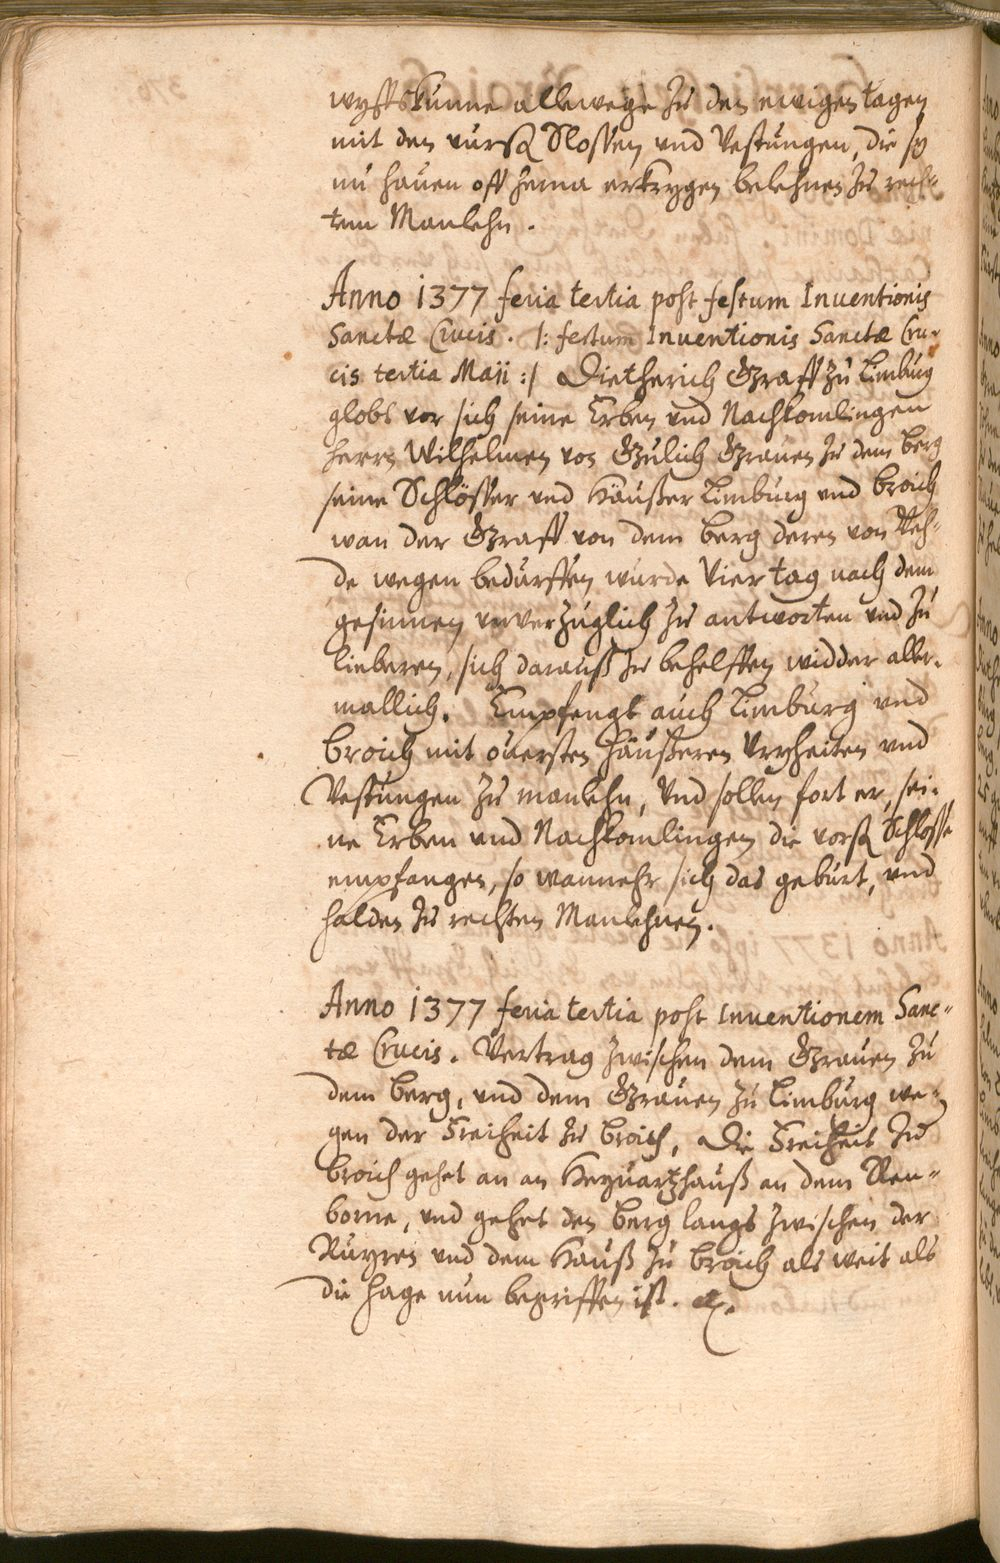 wyffskunne allewege zu den ewigen tagen
mit den vurß Slossen und Vestungen, die sy
nu hauen off herna erkrygen belehnen zu rech-
tem Manlehn.
Anno 1377 feria tertia post festum Inventionis
Sanctæ Crucis. /: festum Inventionis Sanctæ Cru-
cis tertia Maii :/ Dietherich Graff zu Limburg
globt vor sich seine Erben und Nachkomlingen
herrn Wilhelmen von Gulich Grauen zu dem berg
seine Schlösser und Häußer Limburg und broich
wan der Graff von dem berg deren von Veh-
de wegen bedurffen wurde Vier tag nach dem
gesinnen unverzuglich zu antworten und zu
lieberen, sich darauß zu behelffen widder aller-
mallich. Empfengt auch Limburg und
broich mit ouersten häußeren Vryheiten und
Vestungen zu manlehn, Und sollen fort er, sei-
ne Erben und Nachkomlingen die vorß Schlosse
empfangen, so wannehr sich das geburt, und
halden zu rechten Manlehnen.
Anno 1377 feria tertia post Inventionem Sanc-
tæ Crucis. Vertrag zwischen dem Grauen zu
dem berg, und dem Grauen zu Limburg we-
gen der Freiheit zu broich, Die Freiheit zu
broich gehet an an Heyuartzhauß an dem Ren-
borne, und gehet den berg langs zwischen der
Ruyren und dem Hauß zu broich als weit als
die hage nun begriffen ist. etc.